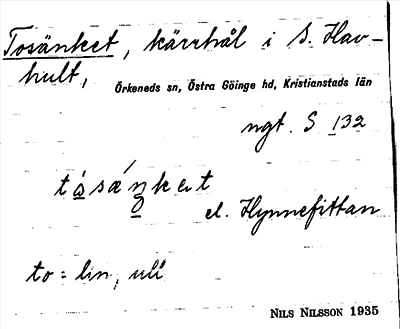 Tosänket, kärrhål i S. Hav-
hult,
Örkeneds sn, Östra Göinge hd, Kristianstads län
ngt. S 132
el. Hynnefittan
to = lin, ull
NILS NILSSON 1935